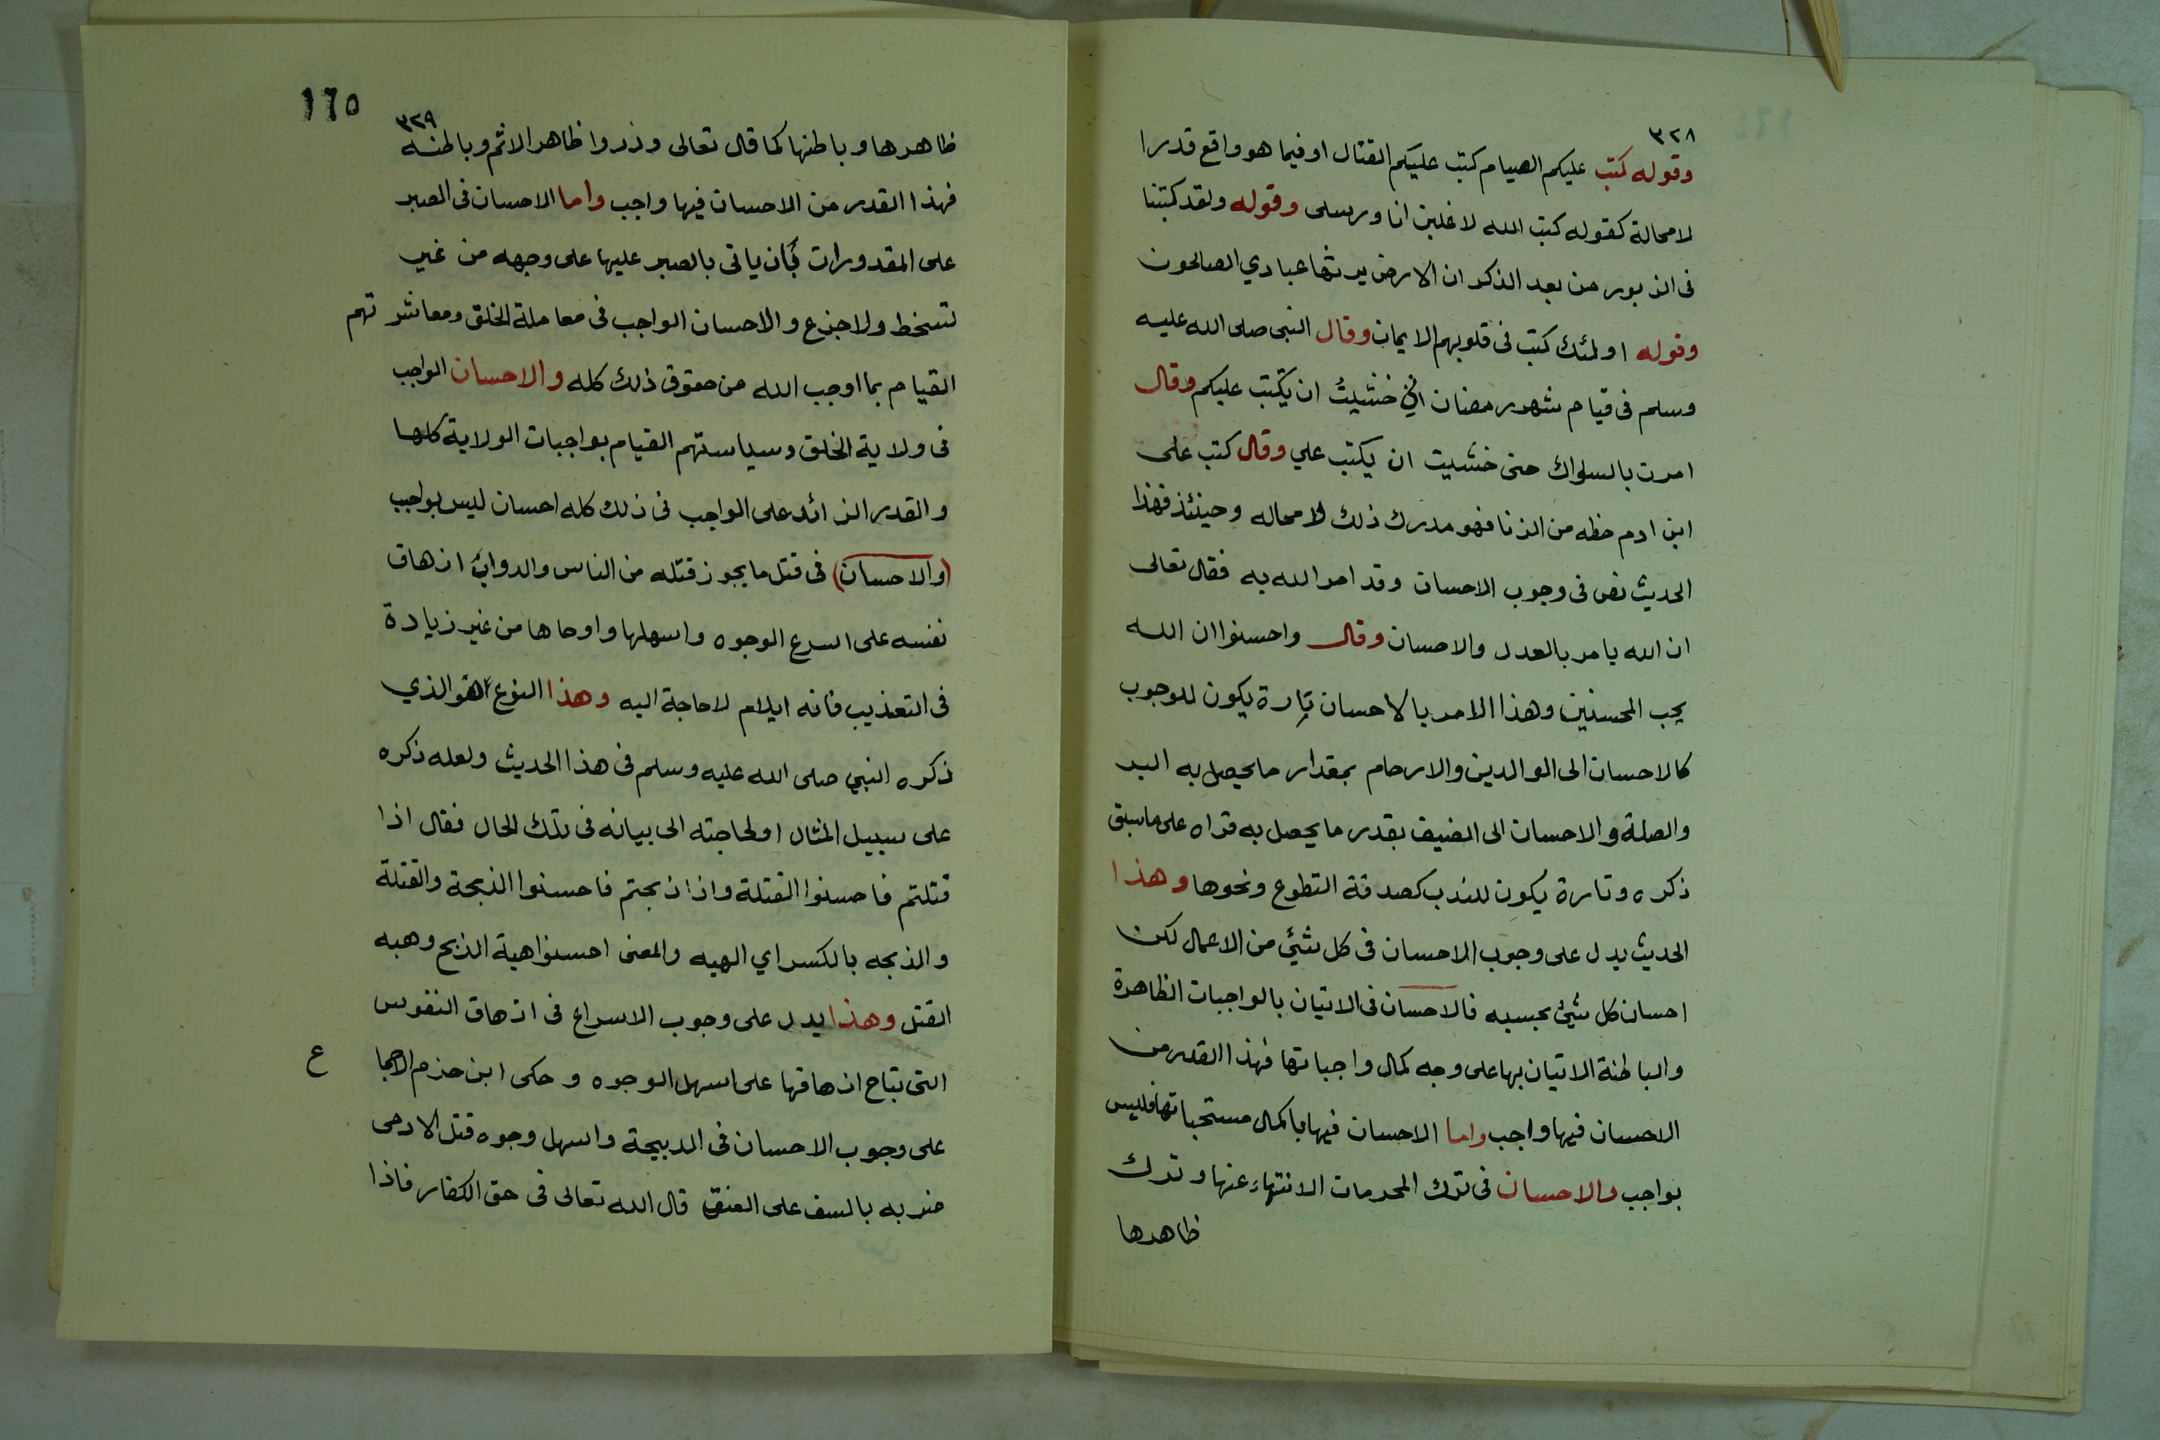 ٣٢٨
وقوله كتب عليكم الصيام كتب عليكم القتال اوفيما هو واقع قدرا
لامحالة كقوله كتب الله لاغلبن انا ورسلى وقوله ولقد كتبنا
فى الزبور من بعد الذكر ان الارض يرثها عبادي الصالحون
وقوله اولئك كتب فى قلوبهم الايمان وقال النبى صلى الله عليه
وسلم فى قيام شهر رمضان انى خشيت ان يكتب عليكم وقال
امرت بالسواك حتى خشيت ان يكتب علي وقال كتب على
ابن ادم حظه من الزنا فهو مدرك ذلك لا محاله وحينئذ فهذا
الحديث نص فى وجوب الاحسان وقد امر الله به فقال تعالى
ان الله يامر بالعدل والاحسان وقال واحسنوا ان الله
يحب المحسنين وهذا الامر بالاحسان تارة يكون للوجوب
كالاحسان الى الوالدين والارحام بمقدار ما يحصل به البر
والصلة والاحسان الى الضيف بقدر ما يحصل به قراه على ماسبق
ذكره وتارة يكون للندب كصدقة التطوع ونحوها وهذا
الحديث يدل على وجوب الاحسان فى كل شئ من الاعمال لكن
احسان كل شئ بحسبه فالاحسان فى الاتيان بالواجبات الظاهرة
والباطنة الاتيان بها على وجه كمال واجباتها فهذا القدر من
الاحسان فيها واجب واما الاحسان فيها باكمال مستحباتها فليس
بواجب والاحسان فى ترك المحرمات الانتهاء عنها وترك
ظاهرها
١٦٥
٣٢٩
ظاهرها وباطنها كما قال تعالى وذروا ظاهر الاثم وباطنه
فهذا القدر من الاحسان فيها واجب واما الاحسان فى الصبر
على المقدورات فبان ياتى بالصبر عليها على وجهه من غير
تسخط ولا جزع والاحسان الواجب فى معاملة الخلق ومعاشرتهم
القيام بما اوجب الله من حقوق ذلك كله والاحسان الواجب
فى ولاية الخلق وسياستهم القيام بواجبات الولاية كلها
والقدر الزائد على الواجب فى ذلك كله احسان ليس بواجب
(والاحسان) فى قتل ما يجوز قتله من الناس والدواب ازهاق
نفسه على اسرع الوجوه واسهلها واوحاها من غير زيادة
فى التعذيب فانه ايلام لاحاجة اليه وهذا النوع هو الذي
ذكره النبي صلى الله عليه وسلم فى هذا الحديث ولعله ذكره
على سبيل المثال او لحاجته الى بيانه فى تلك الحال فقال اذا
قتلتم فاحسنوا القتلة واذا ذبحتم فاحسنوا الذبحة والقتلة
والذبحه بالكسر اي الهيه والمعنى احسنوا هية الذبح وهيه
القتل وهذا يدل على وجوب الاسراع فى ازهاق النفوس
التى يتاح ازهاقها على اسهل الوجوه وحكى ابن حزم الاجما ع
على وجوب الاحسان فى الدبيحة واسهل وجوه قتل الادمى
ضربه بالسف على العنق قال الله تعالى فى حق الكفار فاذا